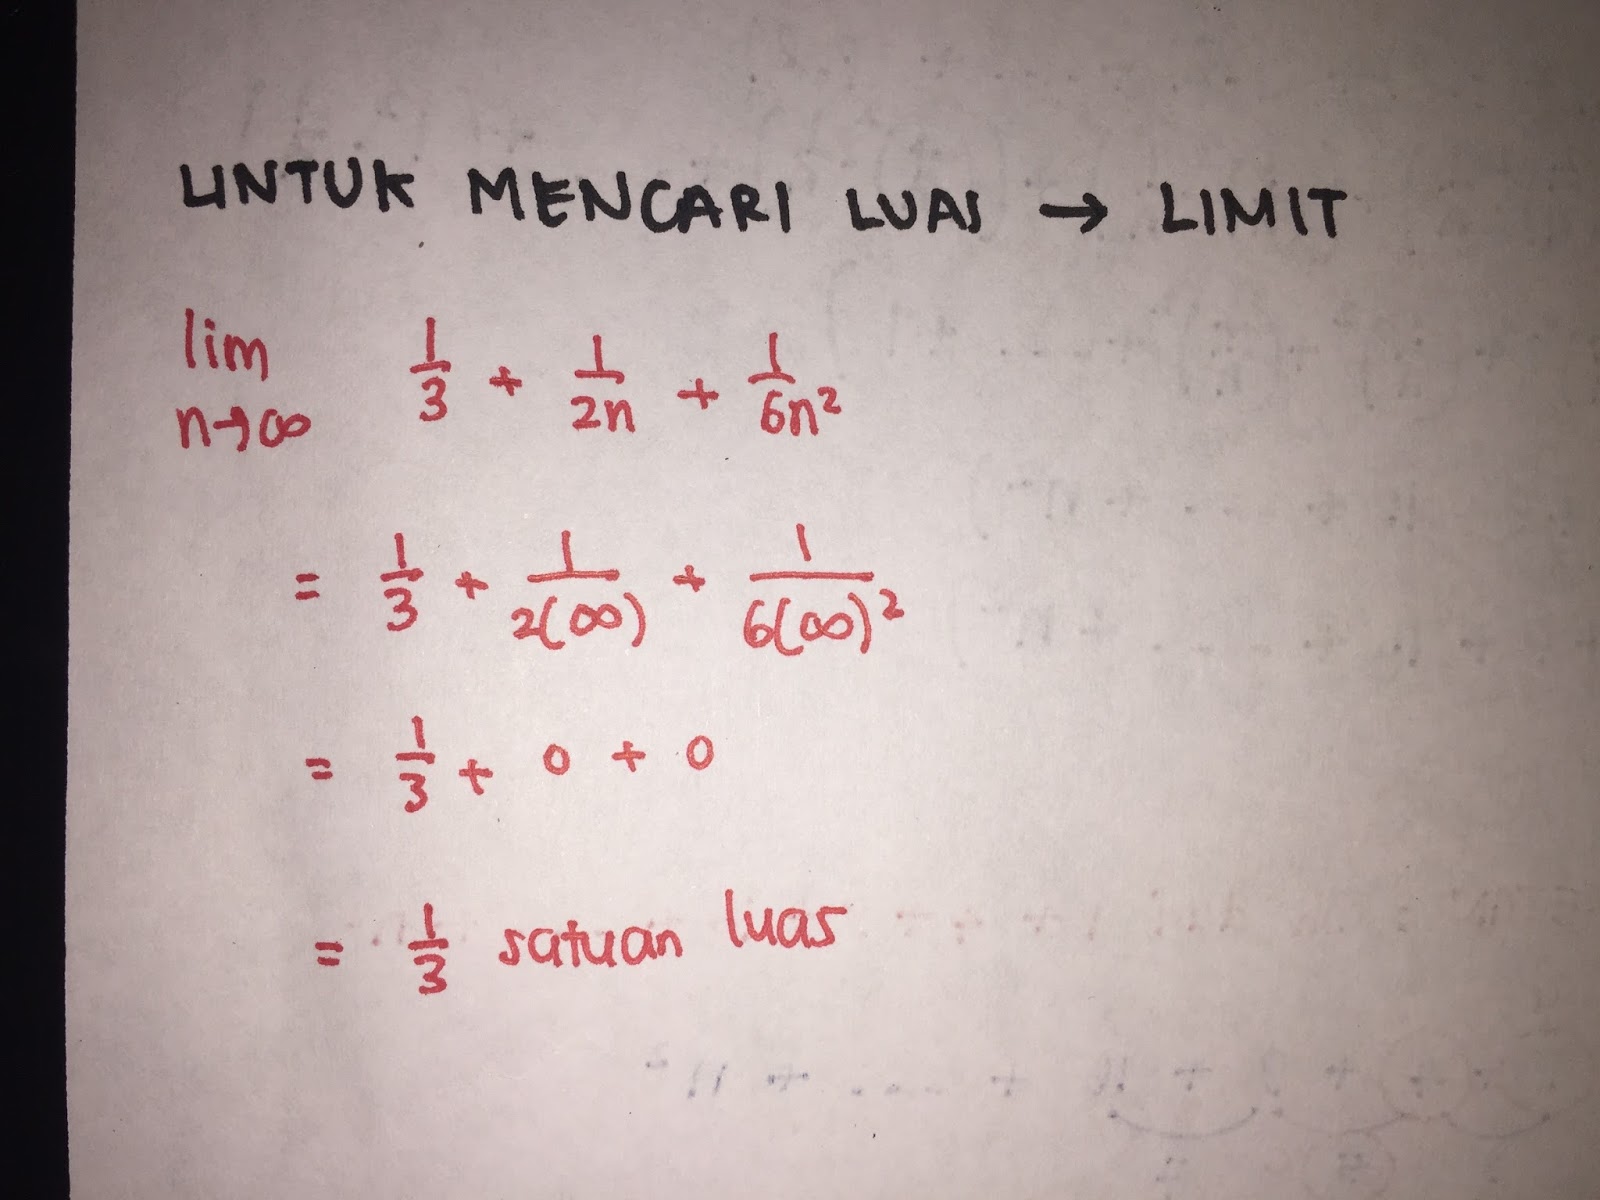 UNTUK MENCARI LUAS → LIMIT
lim n→∞ 1/3 + 1/2n + 1/6n²
= 1/3 + 1/2(∞) + 1/6(∞)²
= 1/3 + 0 + 0
= 1/3 satuan luas